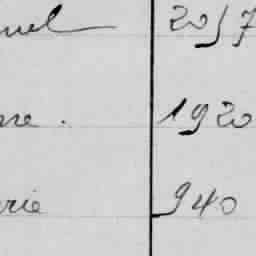 nel 2057
ne. 1920
rie 940